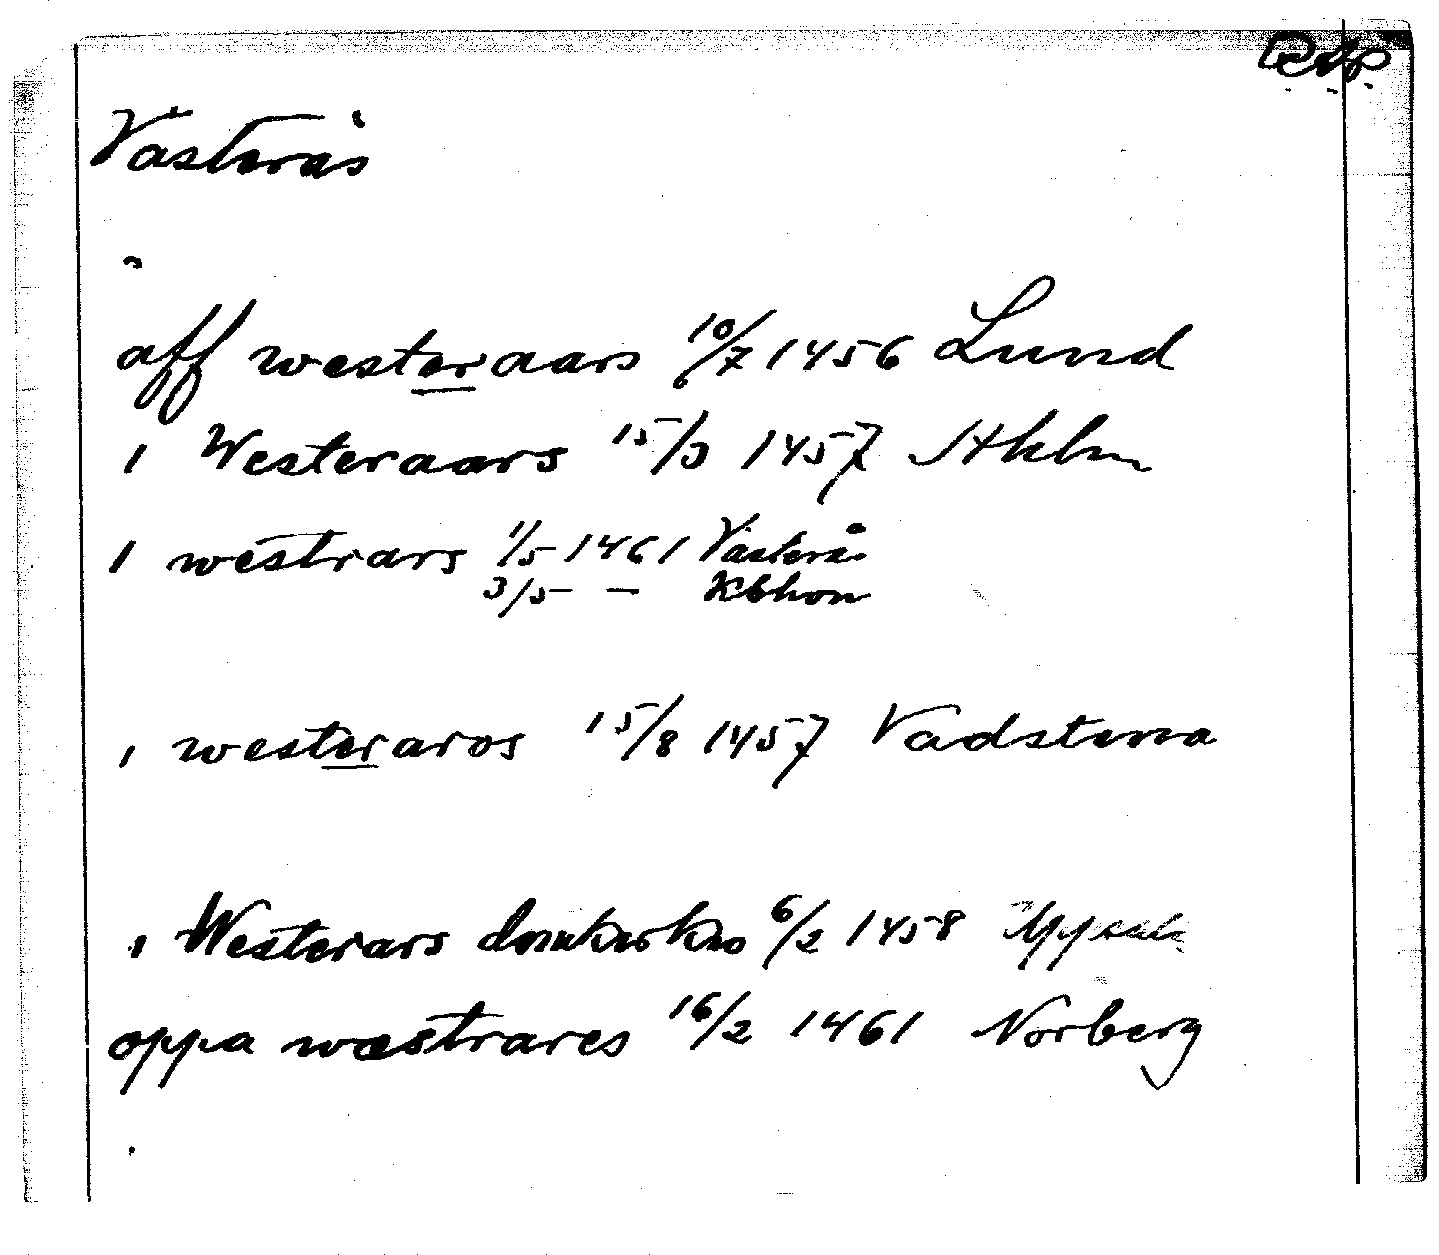 Västerås
aff westeraars 10/7 1456 Lund
i Westeraars 15/3 1457 Sthlm
i westrars 1/5 1461 Västerås
3/5 — Kbhvn
i westeraros 15/8 1457 Vadstena
i Westerars domkirkio 6/2 1458 Uppsala
oppa wæstrares 16/2 1461 Norberg